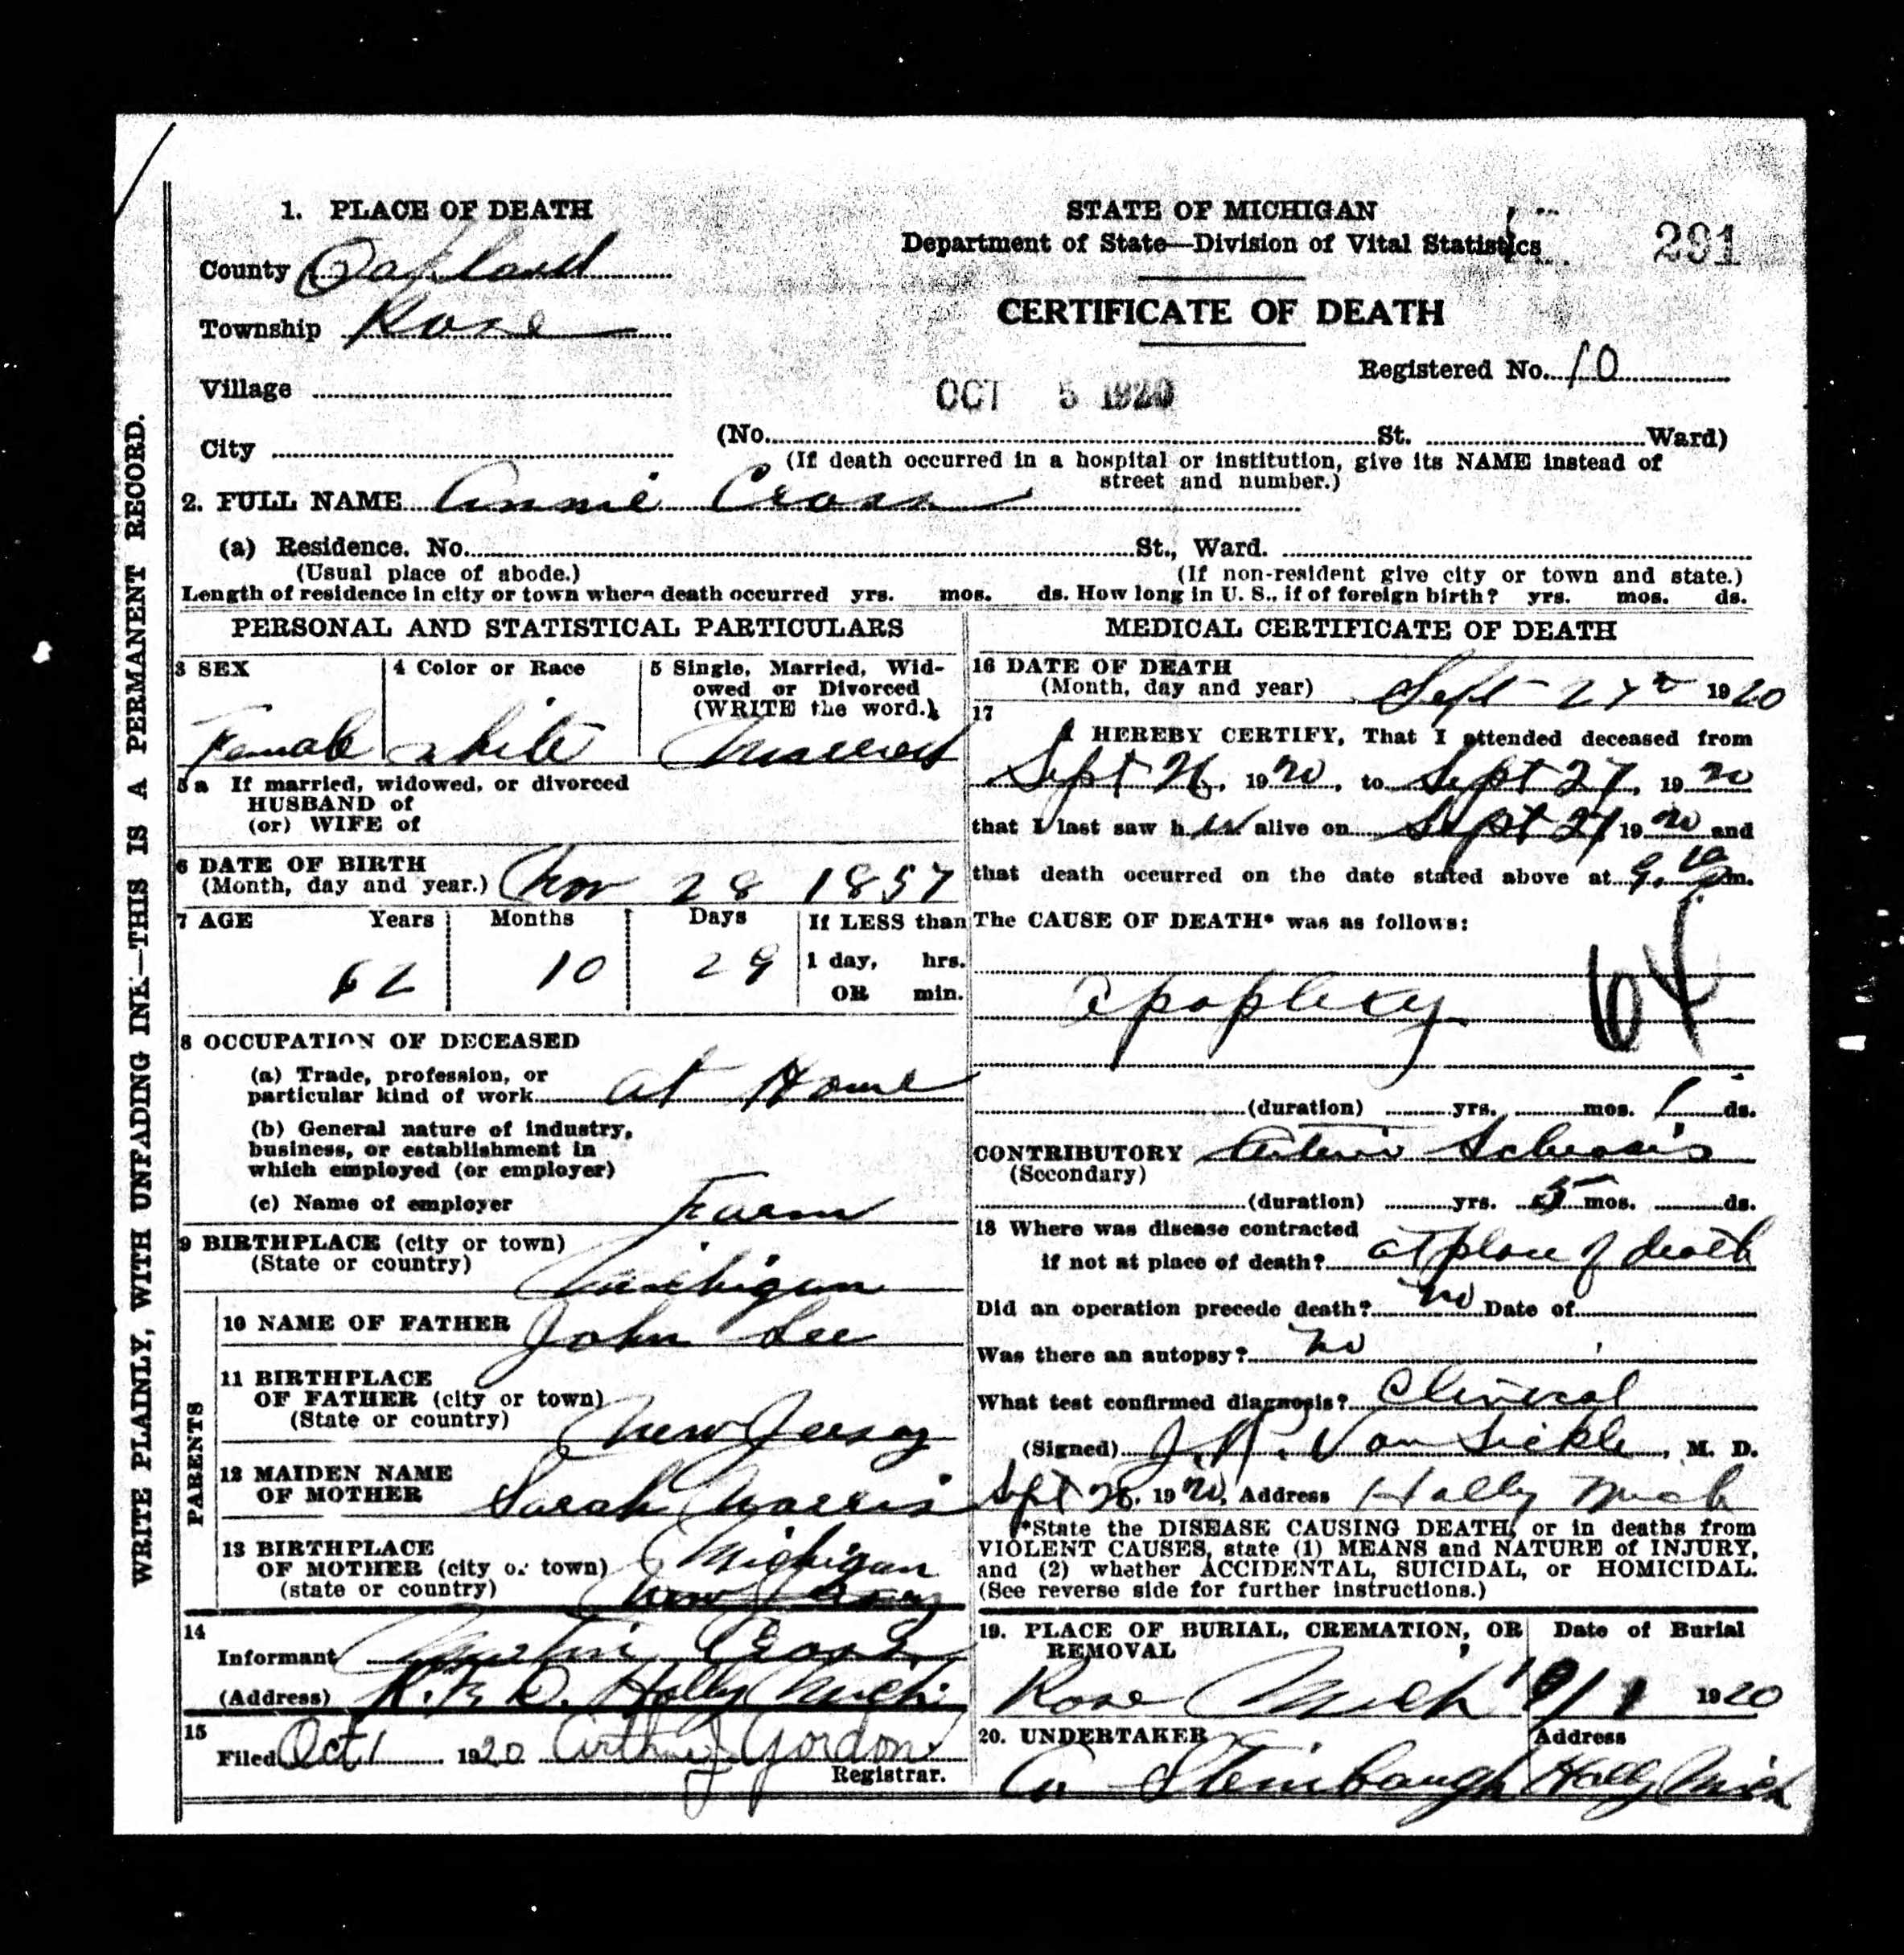 WRITE PLAINLY, WITH UNFADING INK—THIS IS A PERMANENT RECORD.
1. PLACE OF DEATH
County Oakland
Township Rose
Village
City
STATE OF MICHIGAN
Department of State—Division of Vital Statistics
291
CERTIFICATE OF DEATH
Registered No. 10
OCT 5 1920
(No. St. Ward)
(If death occurred in a hospital or institution, give its NAME instead of
street and number.)
2. FULL NAME Annie Cross
(a) Residence. No. St., Ward.
(Usual place of abode.) (If non-resident give city or town and state.)
Length of residence in city or town where death occurred yrs. mos. ds. How long in U. S., if of foreign birth? yrs. mos. ds.
PERSONAL AND STATISTICAL PARTICULARS
3 SEX
Female
4 Color or Race
White
5 Single, Married, Wid-
owed or Divorced
(WRITE the word.)
Married
5a If married, widowed, or divorced
HUSBAND of
(or) WIFE of
6 DATE OF BIRTH
(Month, day and year.) Nov 28 1857
7 AGE Years Months Days If LESS than
62 10 29 1 day, hrs.
OR min.
8 OCCUPATION OF DECEASED
(a) Trade, profession, or
particular kind of work at Home
(b) General nature of industry,
business, or establishment in
which employed (or employer)
(c) Name of employer Farm
9 BIRTHPLACE (city or town)
(State or country) Michigan
PARENTS
10 NAME OF FATHER John Lee
11 BIRTHPLACE
OF FATHER (city or town)
(State or country) New Jersey
12 MAIDEN NAME
OF MOTHER Sarah Norris
13 BIRTHPLACE
OF MOTHER (city or town) Michigan
(state or country) New Jersey
14
Informant Cross
(Address) R.F.D. Holly Mich.
15
Filed Oct 1 1920 Arthur J Gordon
Registrar.
MEDICAL CERTIFICATE OF DEATH
16 DATE OF DEATH
(Month, day and year) Sept 27 1920
17
I HEREBY CERTIFY, That I attended deceased from
Sept 26, 1920, to Sept 27, 1920
that I last saw her alive on Sept 27 1920 and
that death occurred on the date stated above at 9. m.
The CAUSE OF DEATH* was as follows:
64
apoplexy
(duration) yrs. mos. 1 ds.
CONTRIBUTORY Arterio Sclerosis
(Secondary)
(duration) yrs. 5 mos. ds.
18 Where was disease contracted
if not at place of death? at place of death
Did an operation precede death? no Date of
Was there an autopsy? no
What test confirmed diagnosis? Clinical
(Signed) Van Sickle, M. D.
Sept 28, 1920, Address Holly Mich
*State the DISEASE CAUSING DEATH, or in deaths from
VIOLENT CAUSES, state (1) MEANS and NATURE of INJURY,
and (2) whether ACCIDENTAL, SUICIDAL, or HOMICIDAL.
(See reverse side for further instructions.)
19. PLACE OF BURIAL, CREMATION, OR
REMOVAL
Rose Mich
Date of Burial
1920
20. UNDERTAKER
Steinbaugh
Address
Holly Mich